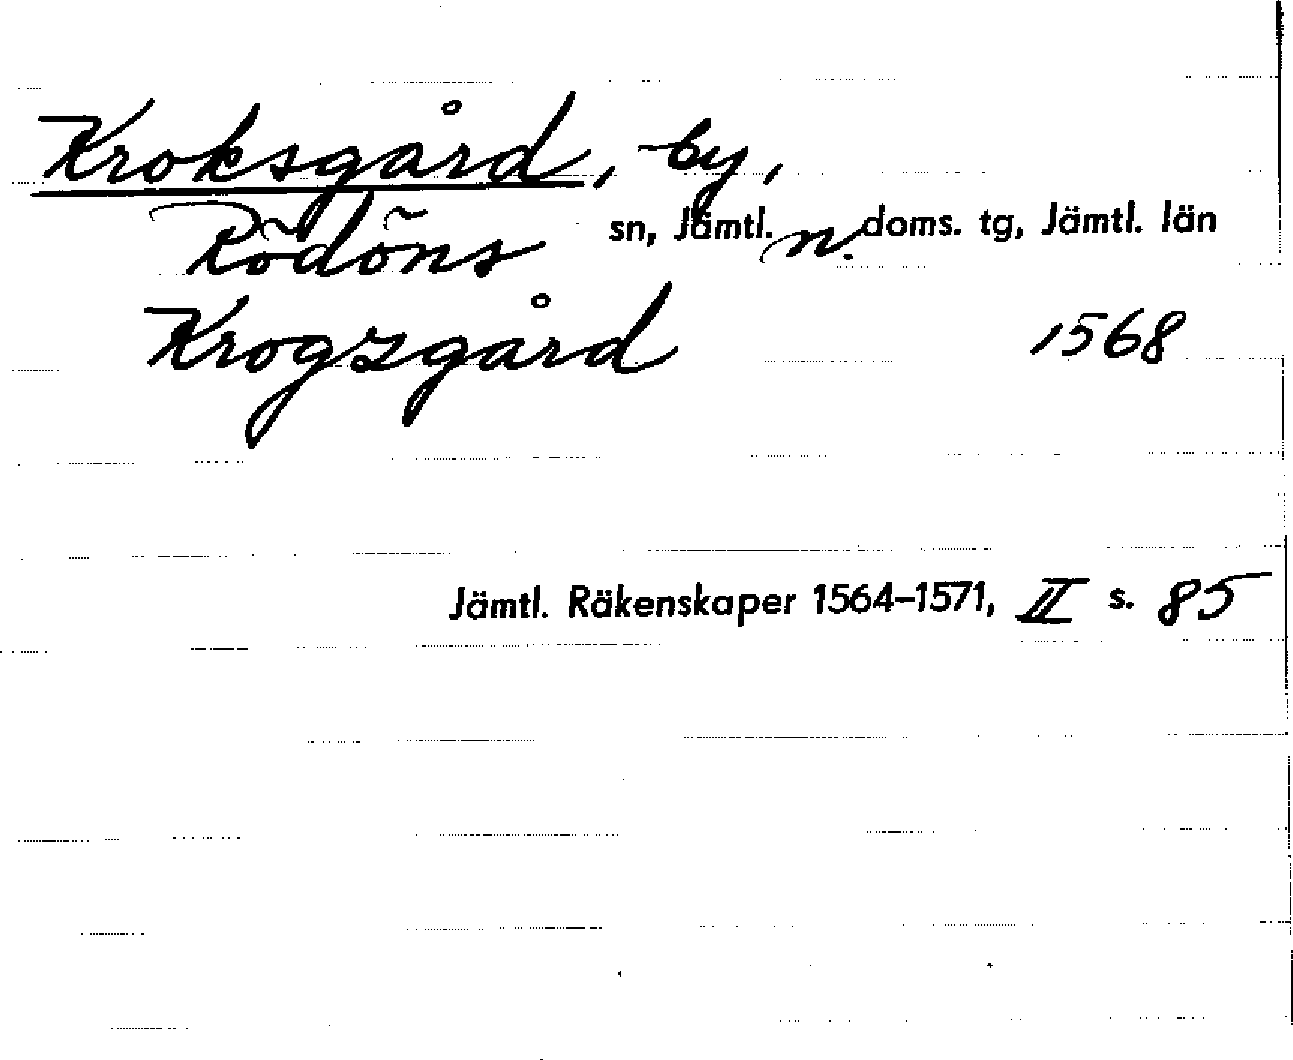 Kroksgård, by,
Rödöns sn, Jämtl. n. doms. tg, Jämtl. län
Krogzgård 1568
Jämtl. Räkenskaper 1564–1571, II s. 85